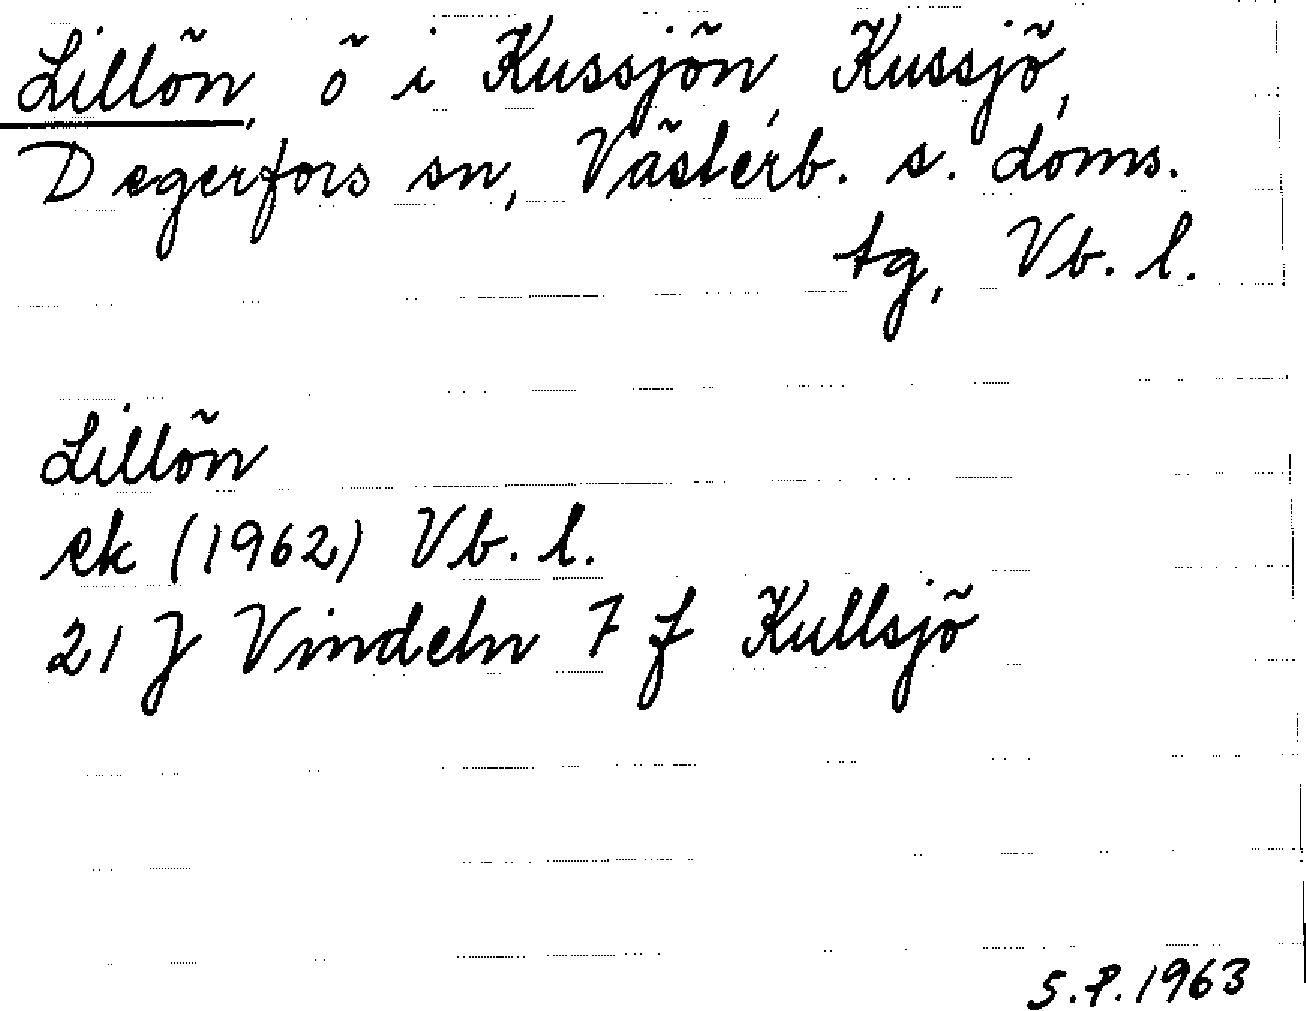 Lillön, ö i Kussjön, Kussjö,
Degerfors sn, Västerb. s. doms.
tg, Vb. l.
Lillön
ek (1962) Vb. l.
21 J Vindeln 7 f Kullsjö
S.P. 1963